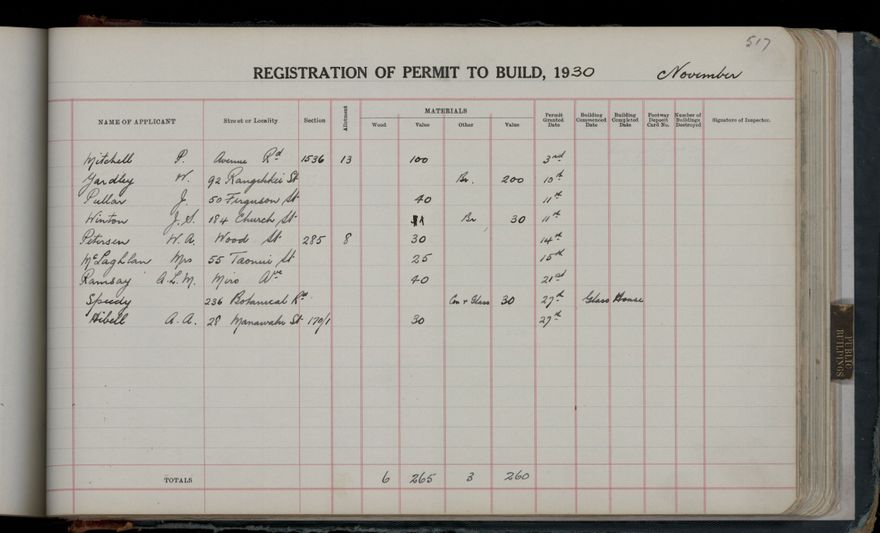 517
REGISTRATION OF PERMIT TO BUILD, 1930 November
NAME OF APPLICANT Street or Locality Section Allotment MATERIALS Wood Value Other Value Permit Granted Date Building Commenced Date Building Completed Date Footway Deposit Card No. Number of Buildings Destroyed Signature of Inspector.
Mitchell P. Avenue Rd 1536 13 100 3rd
Yardley W. 92 Rangitikei St Br. 200 10th
Pullar J. 50 Ferguson St 40 11th
Winton J.S. 184 Church St Br 30 11th
Petersen W.A. Wood St 285 8 30 14th
McLaghlan Mrs 55 Taonui St 25 15th
Ramsay A.L.M. Miro Ave 40 21st
Speedy 236 Botanical Rd Con & Glass 30 27th Glass House
Hibell A.A. 28 Manawatu St 170/1 30 27th
TOTALS 6 265 3 260
PUBLIC
BUILDINGS